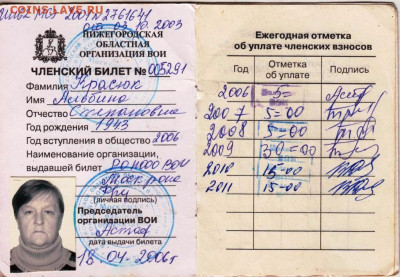 COINS.SU
МСЭ 2001 № 2761641
от 03.10.2003
НИЖЕГОРОДСКАЯ
ОБЛАСТНАЯ
ОРГАНИЗАЦИЯ ВОИ
ЧЛЕНСКИЙ БИЛЕТ № 005291
Фамилия Красюк
Имя Альбина
Отчество Степановна
Год рождения 1943
Год вступления в общество 2006
Наименование организации,
выдавшей билет
(личная подпись)
Председатель
организации ВОИ
дата выдачи билета
18-04-2006г
Ежегодная отметка
об уплате членских взносов
Год Отметка об уплате Подпись
2006 5=
2007 5=00
2008 5=00
2009 30=00
2010 15-00
2011 15-00